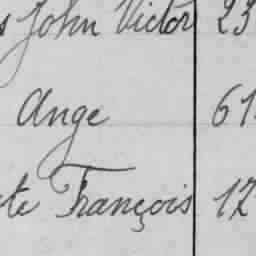 John Victor 23
Ange 61
François 12